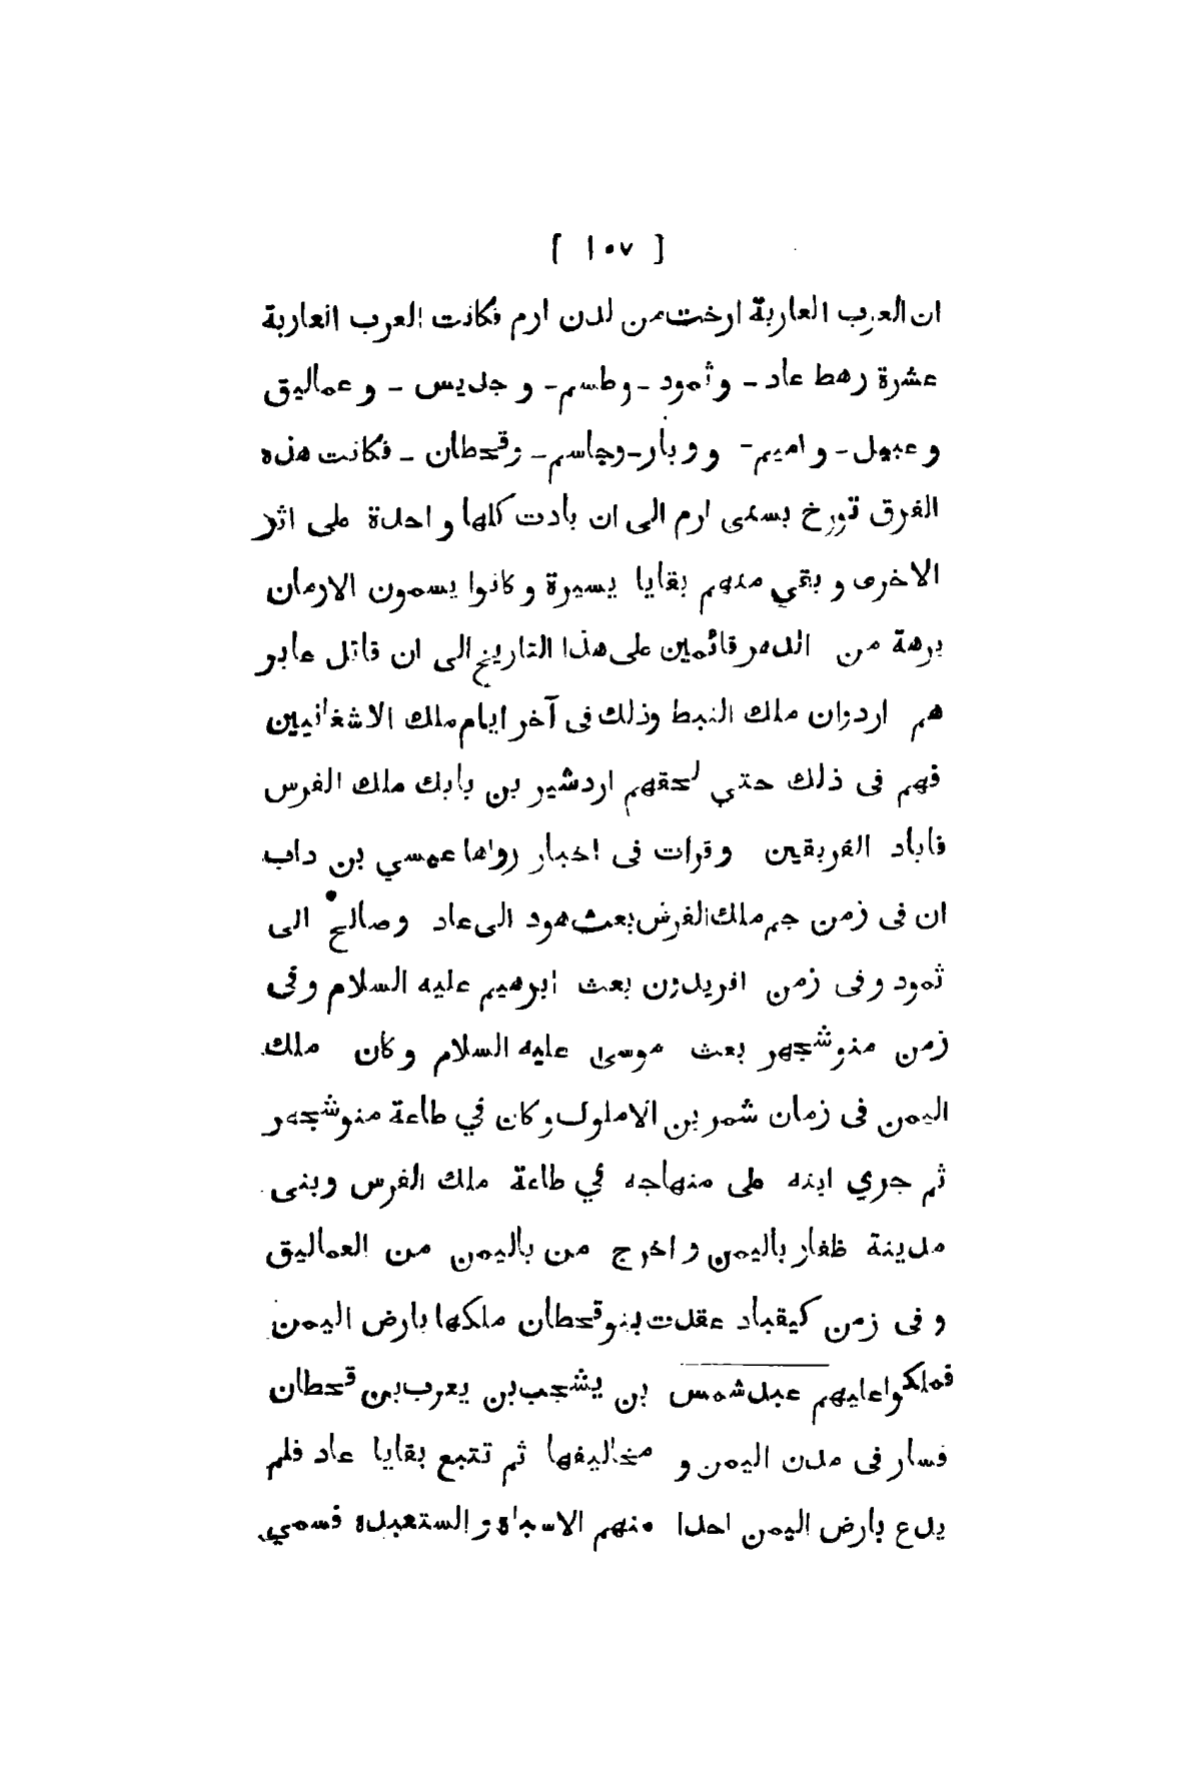 [ ١٠٧ ]
ان العرب العاربة ارخت من لدن ارم فكانت العرب العاربة
عشرة رهط عاد - وثمود - وطسم - و جديس - و عماليق
و عبيل - و اميم - و وبار - وجاسم - وقحطان - فكانت هذه
الفرق تورخ بسني ارم الى ان بادت كلها و احدة على اثر
الاخرى و بقي منهم بقايا يسيرة و كانوا يسمون الارمان
برهة من الدهر قائمين على هذا التاريخ الى ان قاتل عابر
هم اردوان ملك النبط وذلك فى آخر ايام ملك الاشغانيين
فهم فى ذلك حتي لحقهم اردشير بن بابك ملك الفرس
فاباد الفريقين وقرات فى اخبار رواها عيسي بن داب
ان فى زمن جم ملك الفرس بعث هود الى عاد وصالح الى
ثمود وفى زمن افريدون بعث ابرهيم عليه السلام وفى
زمن منوشجهر بعث موسى عليه السلام وكان ملك
اليمن فى زمان شمر بن الاملوك وكان في طاعة منوشجهر
ثم جري ابنه على منهاجه في طاعة ملك الفرس وبنى
مدينة ظفار باليمن و اخرج من باليمن من العماليق
و فى زمن كيقباد عقدت بنو قحطان ملكها بارض اليمن
فملكوا عليهم عبد شمس بن يشجب بن يعرب بن قحطان
فسار فى مدن اليمن و مخاليفها ثم تتبع بقايا عاد فلم
يدع بارض اليمن احدا منهم الاسباه و الستعبده فسمي